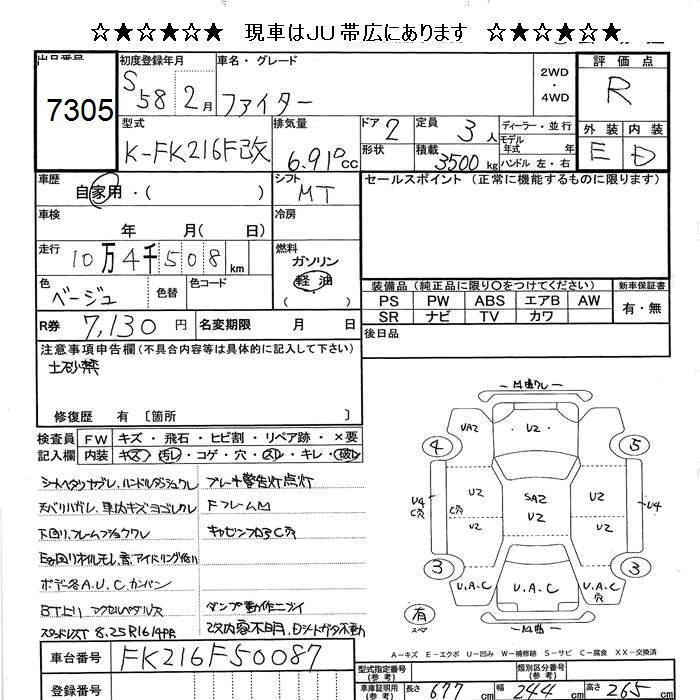 ☆★☆★☆★ 現車はJU帯広にあります ☆★☆★☆★
出品番号 初度登録年月 車名・グレード 2WD・4WD 評価点
7305 S58 2月 ファイター R
型式 排気量 ドア 2 定員 3人 ディーラー・並行 外装 内装
K-FK216F改 6.910cc 形状 積載 3500kg モデル年式 年 E D
ハンドル 左・右
車歴 自家用・( ) シフト MT セールスポイント (正常に機能するものに限ります)
車検 年 月( 日) 冷房
走行 10万4千508km 燃料 ガソリン 軽油 ( )
色 ベージュ 色替 色コード
装備品(純正品に限り〇をつけてください) 新車保証書
PS PW ABS エアB AW 有・無
SR ナビ TV カワ
R券 7,130円 名変期限 月 日 後日品
注意事項申告欄(不具合内容等は具体的に記入して下さい)
土砂禁
修復歴 有 〔箇所 〕
検査員記入欄 FW キズ・飛石・ヒビ割・リペア跡・×要
内装 キズ・汚レ・コゲ・穴・スレ・キレ・破レ
シートヘタリヤブレ、ハンドルダッシュワレ ブレーキ警告灯点灯
天バリハガレ、車内キズヨゴレワレ FフレームM
キャビンフロアC穴
ボデー各A.U.C.カンバン
ダンプ動作ニブイ
8.25R16 14PR
M曲ワレ
UA2 U2
4 5
U4 C穴 C穴 U2 SA2 U2 U2 U4
U2 U2
3 3
U.A.C U.A.C U.A.C 穴
有 スペ M曲
A-キズ E-エクボ U-凹み W-補修跡 S-サビ C-腐食 XX-交換済
車台番号 FK216F50087
型式指定番号(参考) 類別区分番号(参考)
登録番号 車庫証明用(参考) 長さ 677cm 幅 244cm 高さ 265cm